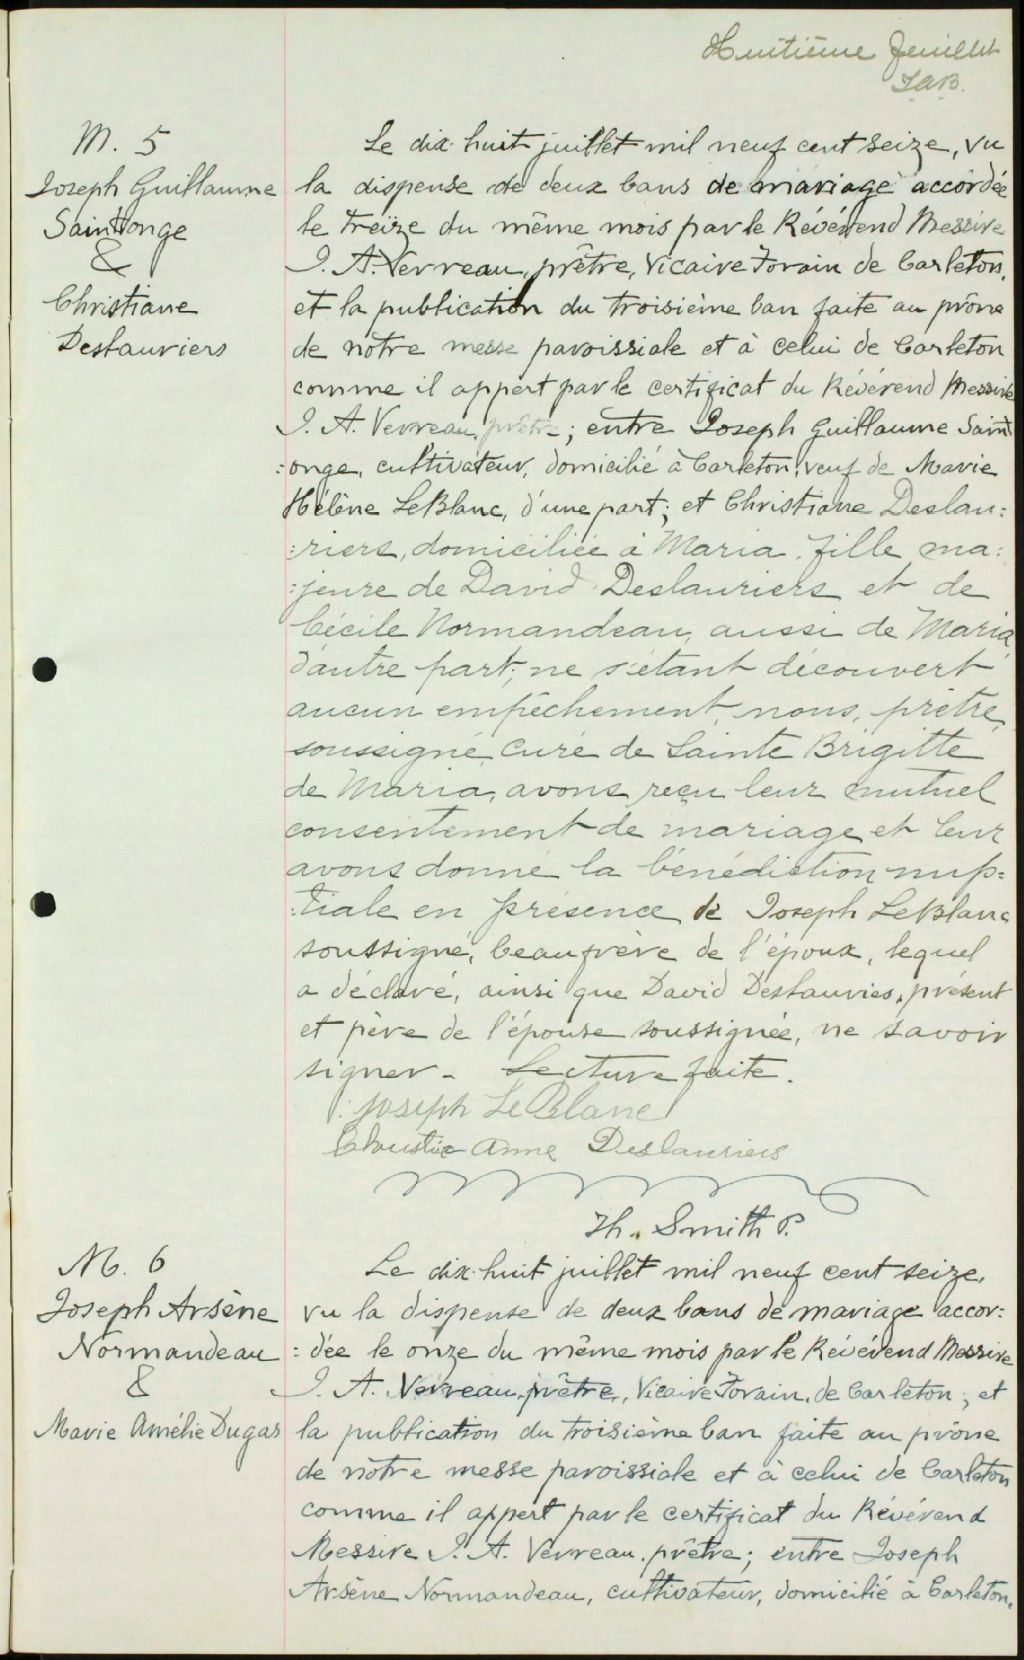 Huitième feuillet
J.A.B.
M. 5
Joseph Guillaume
SaintOnge
&
Christiane
Deslauriers
Le dix-huit juillet mil neuf cent seize, vu
la dispense de deux bans de mariage accordée
le treize du même mois par le Révérend Messire
J. A. Verreau, prêtre, Vicaire Forain de Carleton,
et la publication du troisième ban faite au prône
de nôtre messe paroissiale et à celui de Carleton
comme il appert par le certificat du Révérend Messire
J. A. Verreau, prêtre; entre Joseph Guillaume Saint
:onge, cultivateur, domicilié à Carleton, veuf de Marie
Hélène LeBlanc, d'une part; et Christiane Deslau:
:riers, domiciliée à Maria, fille ma:
:jeure de David Deslauriers et de
Cécile Normandeau, aussi de Maria,
d'autre part; ne s'étant découvert
aucun empêchement, nous, prêtre,
soussigné, Curé de Sainte Brigitte
de Maria, avons reçu leur mutuel
consentement de mariage et leur
avons donné la bénédiction nup:
:tiale en présence de Joseph LeBlanc
soussigné, beaufrère de l'époux, lequel
a déclaré, ainsi que David Deslauries, présent
et père de l'épouse soussignée, ne savoir
signer - Lecture faite.
Joseph LeBlanc
Christie Anne Deslauriers
Th. Smith P.
M. 6
Joseph Arsène
Normandeau
&
Marie Amélie Dugas
Le dix-huit juillet mil neuf cent seize,
vu la dispense de deux bans de mariage accor:
:dée le onze du même mois par le Révérend Messire
J. A. Verreau, prêtre, Vicaire Forain, de Carleton; et
la publication du troisième ban faite au prône
de nôtre messe paroissiale et à celui de Carleton
comme il appert par le certificat du Révérend
Messire J. A. Verreau, prêtre; entre Joseph
Arsène Normandeau, cultivateur, domicilié à Carleton,